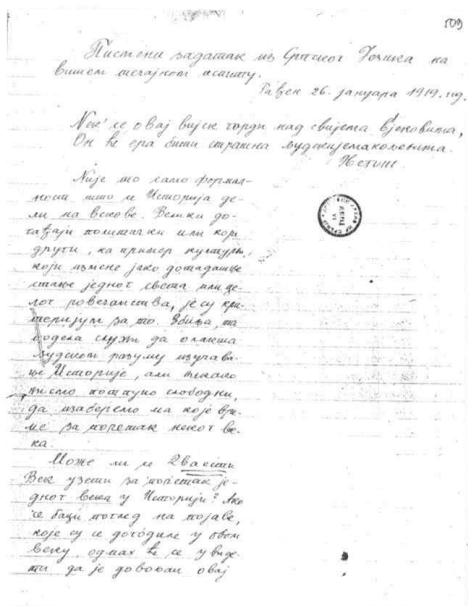 109
Писмени задатак из Српског Језика на
вишем течајном испиту.
Гавен 26. јануара 1919. год.
Нек' се овај вијек горди над свијема вјековима,
Он ће ера бити страшна људскијема кољенима.
Његош.
Није то само формал-
ност што се Историја де-
ли на векове. Велики до-
гађаји политички или који
други, на пример културни,
који измене јако дотадашње
стање једног света или це-
лог човечанства, јесу кри-
теријум за то. Збиља, та
подела служи да олакша
људском разуму изучава-
ње Историје, али
нисмо потпуно слободни,
да изаберемо ма које вре-
ме за почетак неког ве-
ка.
Може ли се Двадесети
Век узети за почетак је-
дног века у Историји? Ако
се баци поглед на појаве,
које су се догодиле у овом
веку, одмах ће се увиде-
ти да је довољан овај